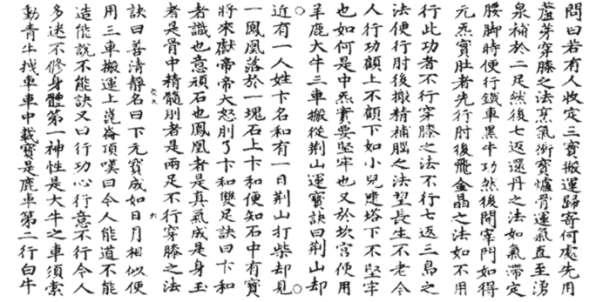 問曰若有人收定三寶搬運歸寄何處先用
蘆芽穿膝之法烹氣衝寶爐骨運氣直至湧
泉補於二足然後七返還丹之法如氣滯定
腰脚時便行鐵車黑牛功然後開睾門如得
元炁寶肚者先行肘後飛金晶之法如不用
行此功者不行穿膝之法不行七返三島之
法便行肘後搬精補腦之法望長生不老令
人行功顧上不顧下如小兒建塔下不堅牢
也如何是中炁實要堅牢也又於坎宮使用
羊鹿大牛三車搬從荆山運寶訣曰荆山却
近有一人姓卞名和有一日荆山打柴却見
一鳳凰落於一塊石上卞和便知石中有寶
將來獻帝帝大怒刖了卞和雙足訣曰卞和
者識也意頑石也鳳凰者是真氣成是身玉
者是骨中精髓刖者是兩足不行穿膝之法
訣曰善清靜名曰下元寶成如日月相似便
用三車搬運上崑崙頂嘆曰令人能道不能
造能說不能訣又曰行功心行意不行令人
多迷不修身體第一神性是大牛之車須索
動青牛找車車中載寶是鹿車第二行白牛